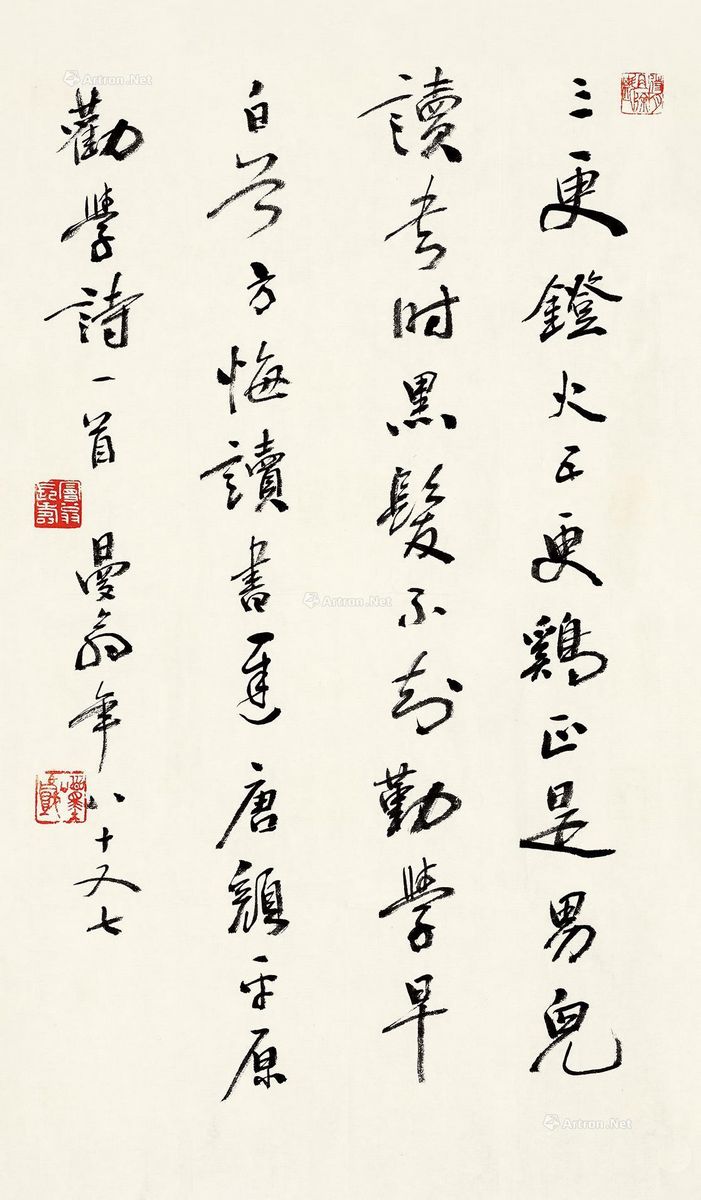 三更鐙火五更鷄正是男兒
讀書时黑髮不知勤學早
白首方悔讀書遲唐顏平原
勸學詩一首 曼翁年八十又七
曼翁長壽
Artron.Net
Artron.Net
Artron.Net